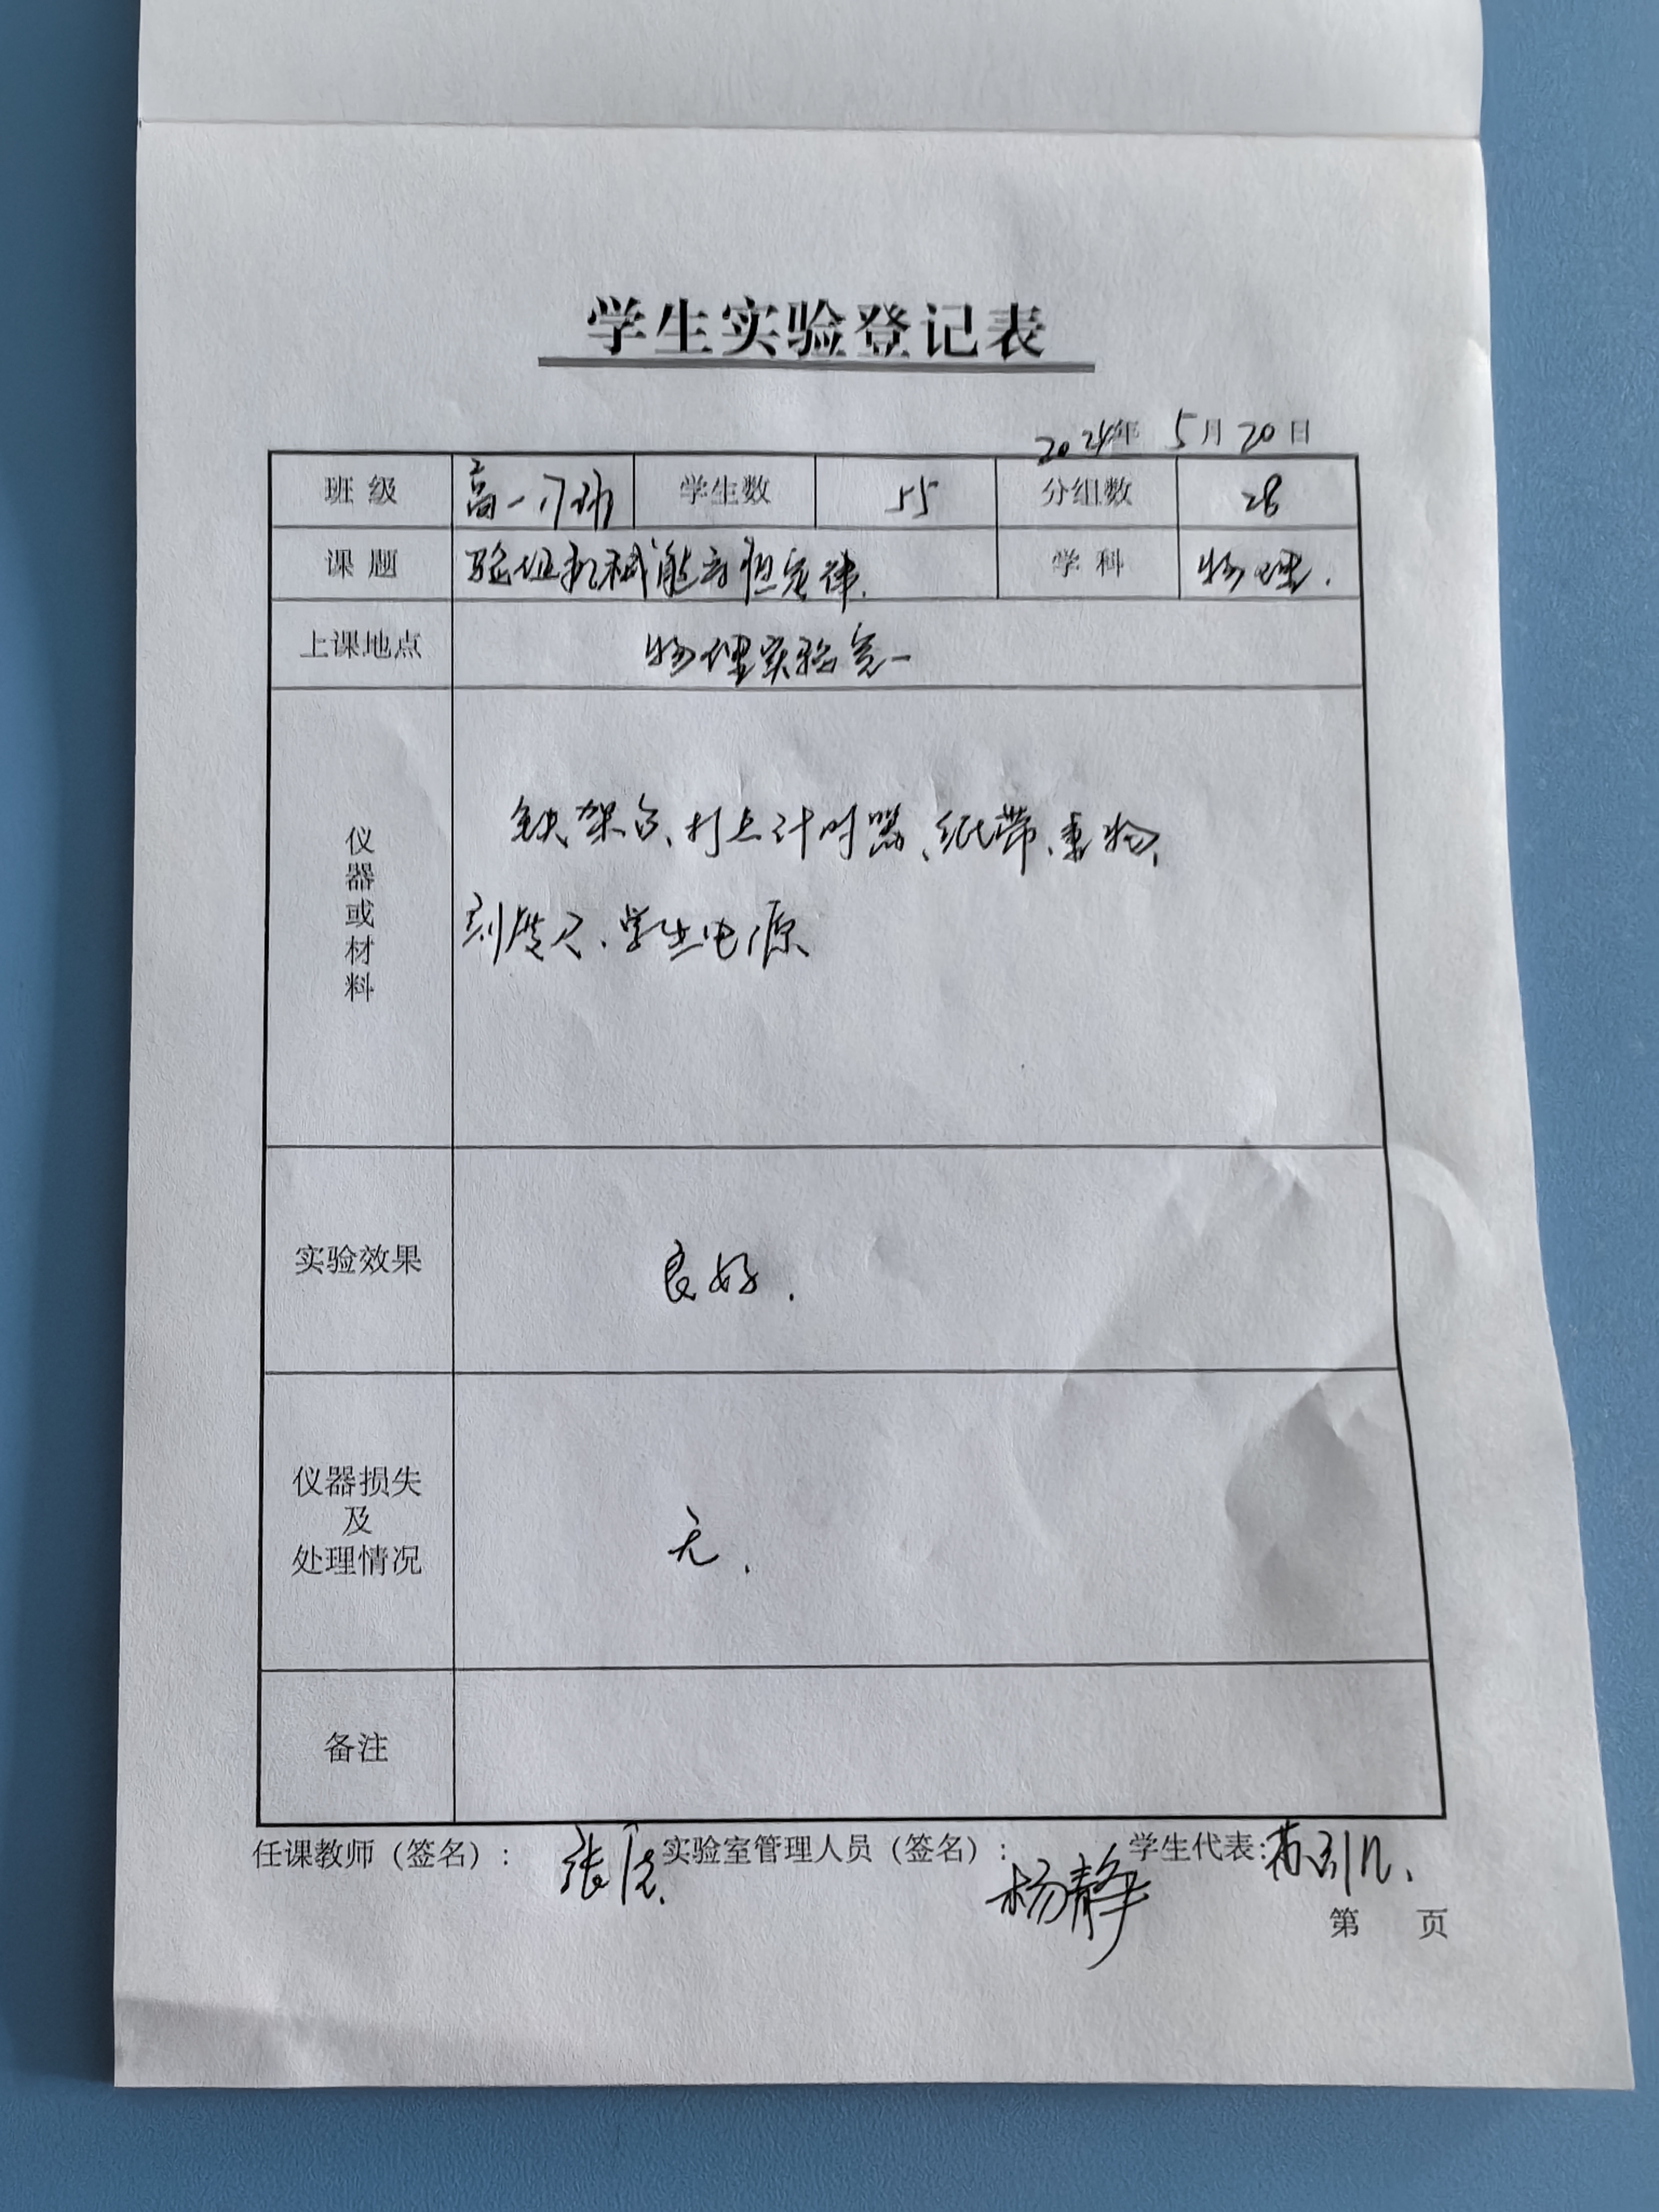 学生实验登记表
2024年 5月20日
班级 高一17班 学生数 55 分组数 28
课题 验证机械能守恒定律. 学科 物理.
上课地点 物理实验室一
仪器或材料
铁架台、打点计时器、纸带、重物、
刻度尺、学生电源
实验效果 良好.
仪器损失
及
处理情况
无.
备注
任课教师（签名）: 张 实验室管理人员（签名）: 杨静 学生代表:
第 页